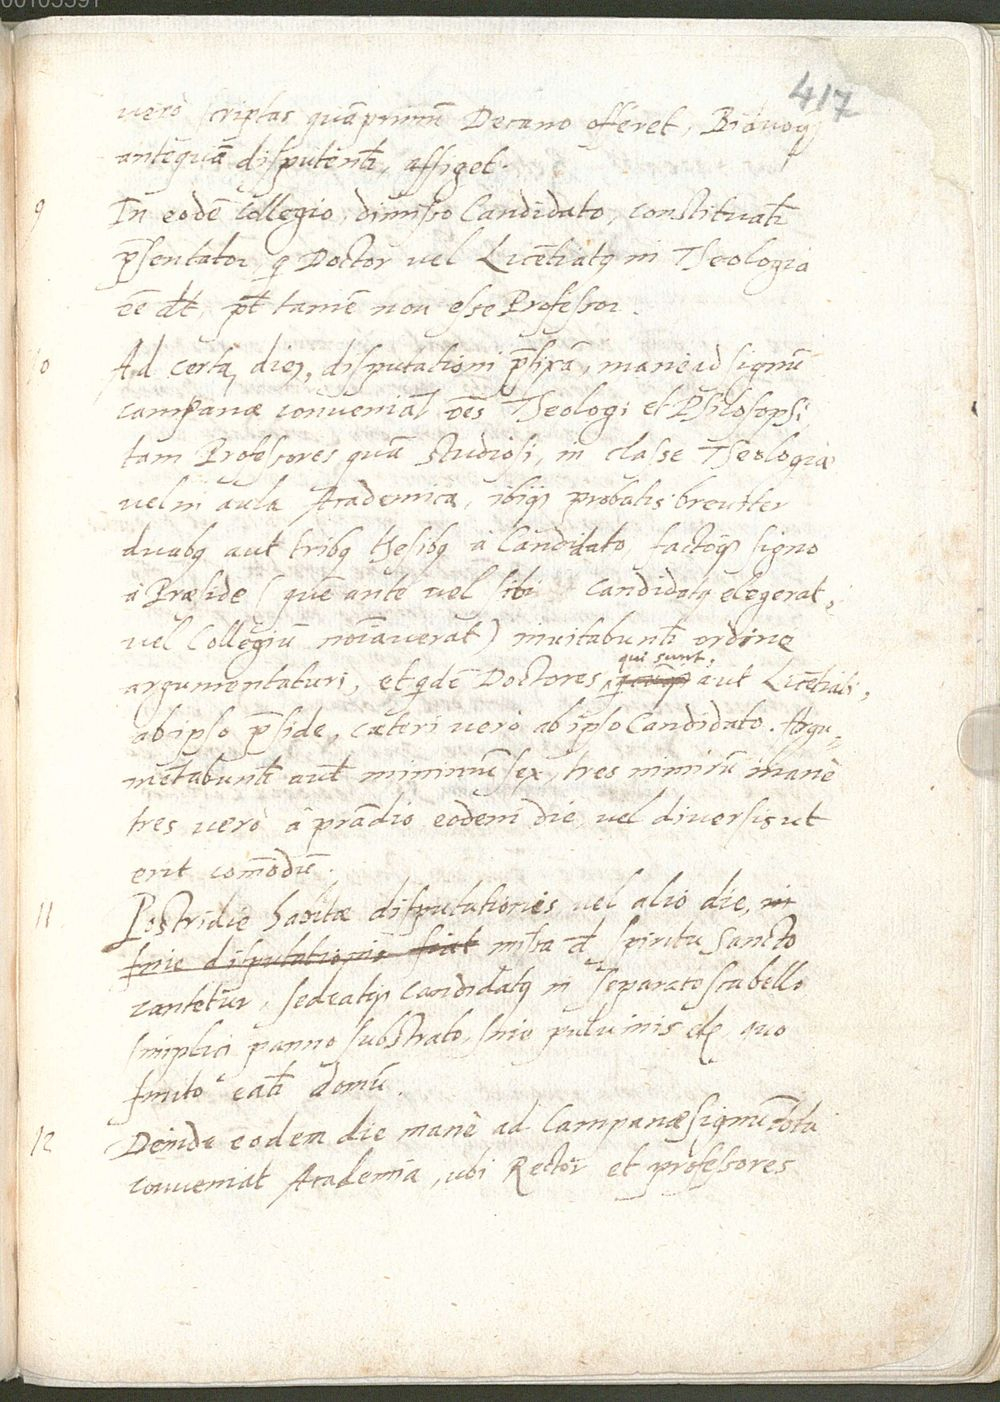 00105391
417
vero scriptas quāprimū Decano offeret, Biduoq₃
antequā disputent̄, affiget.
9 In eodē Collegio dimisso Candidato, constituat̄
p̄sentator, q̄ Doctor vel Licētiatꝰ in Theologia
eē dt̄, pt̄ tamē non esse Professor.
10 Ad certā diē, disputationi p̄fixā, mane ad signū
campanæ conveniāt oēs Theologi et Philosophi,
tam Professores quā studiosi, in classe Theologiæ
vel in aula Academica, ibiq₃ probatis breviter
duabꝰ aut tribꝰ thesibꝰ à Candidato, factoq₃ signo
à Præside (quē ante vel sibi Candidatꝰ elegerat,
vel Collegiū noīaverat) invitabunt̄ ordine
qui sunt,
argumentaturi, et qdē Doctores, aut Licētiati,
ab ipso p̄side, cæteri vero ab ipso Candidato. Argu-
mētabunt̄ aut̄ minimū sex, tres nimirū manè
tres verò à prādio eodem die, vel diversis ut
erit com̄odū.
11 Postridie habitæ disputationis vel alio die, in
fine disputationis fiat missa d̄ spiritu sancto
cantetur, sedeatq₃ candidatꝰ in separato scabello
simplici panno substrato, sine pulvinis etc, quo
finito eat̄ domū.
12 Deinde eodem die manè ad Campanæ signū tota
conveniat Academia, ubi Rector et professores